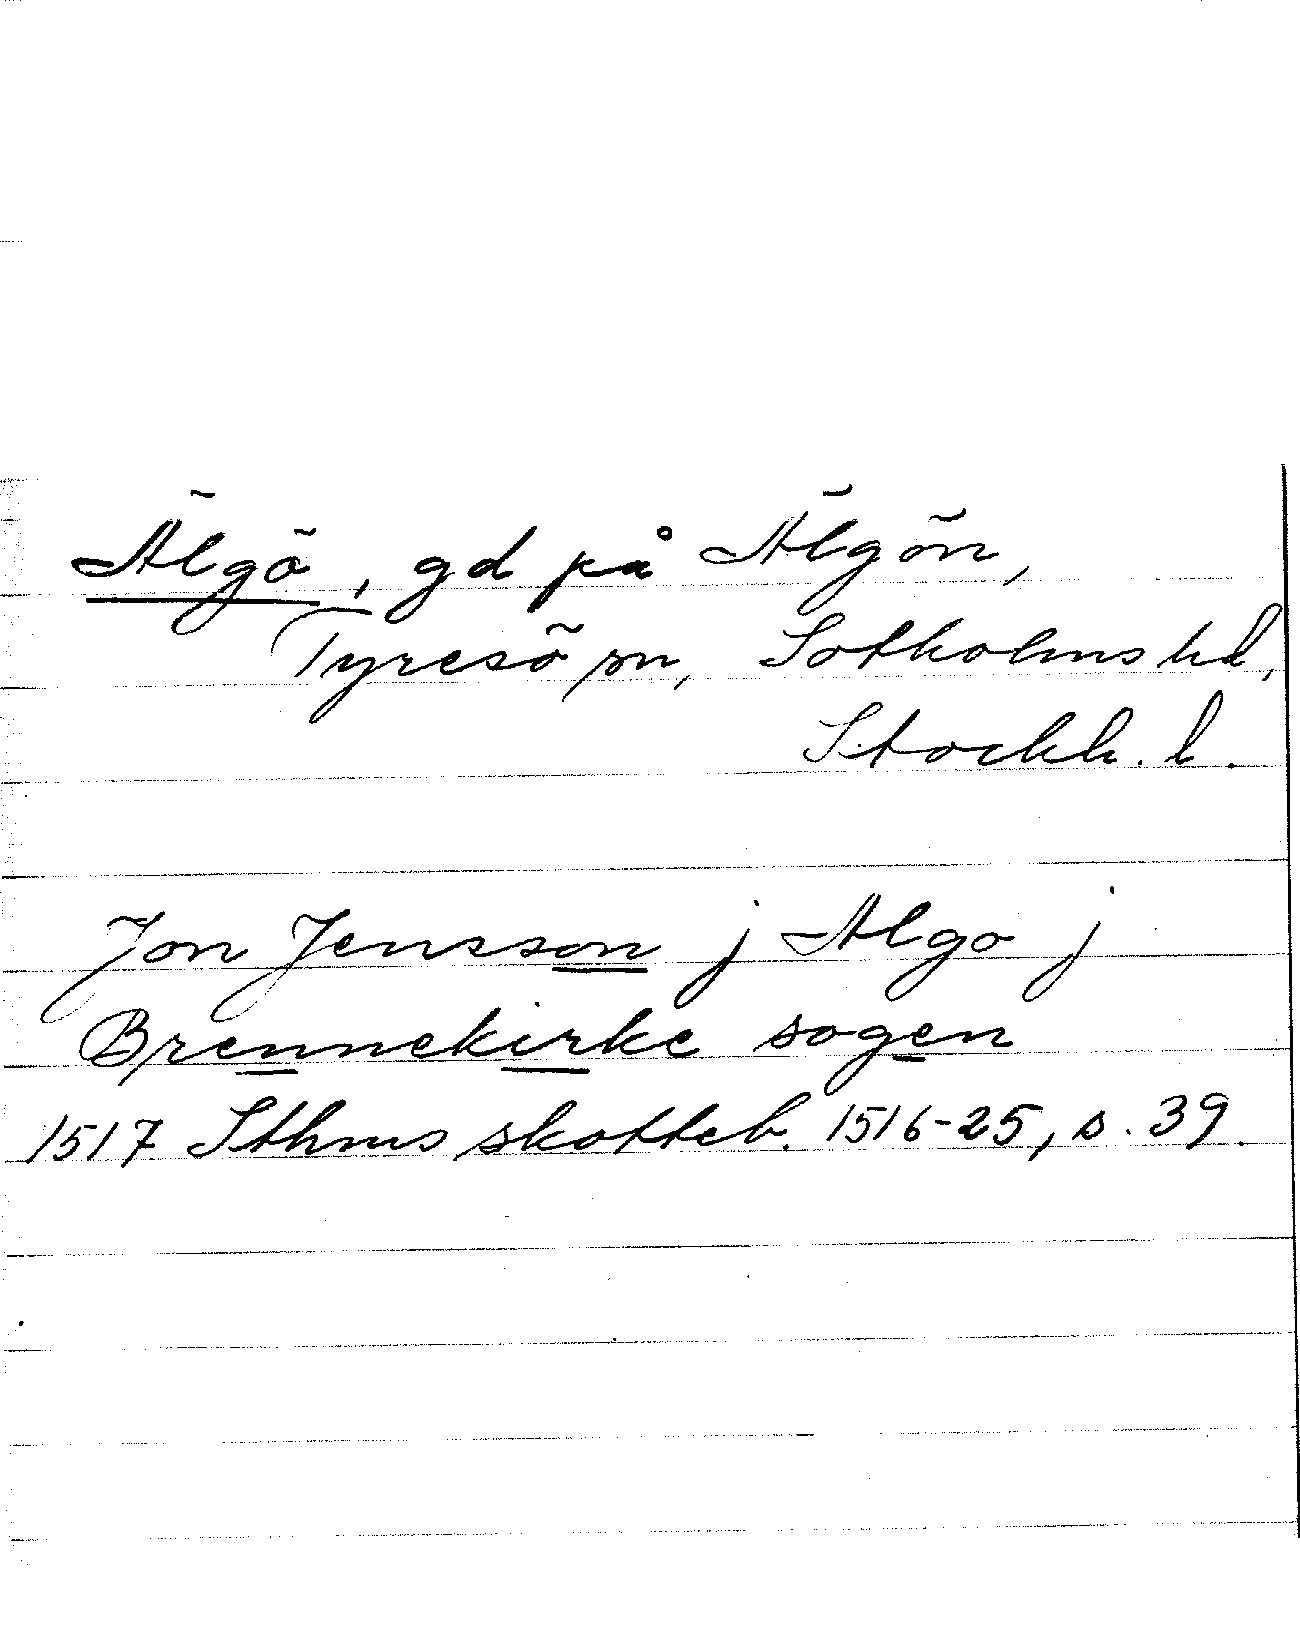 Älgö, gd på Älgön,
Tyresö sn, Sotholms hd,
Stockh. l.
Jon Jensson j Algo j
Brennekirke sogen
1517 Sthms skotteb. 1516-25, s. 39.